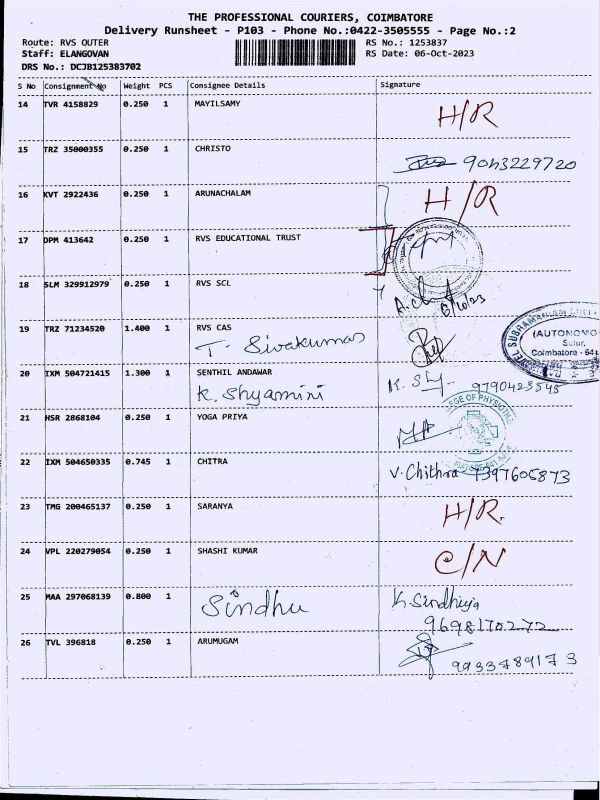 THE PROFESSIONAL COURIERS, COIMBATORE
Delivery Runsheet - P103 - Phone No.:0422-3505555 - Page No.:2
Route: RVS OUTER RS No.: 1253837
Staff: ELANGOVAN RS Date: 06-Oct-2023
DRS No.: DCJB125383702
S No Consignment No Weight PCS Consignee Details Signature
14 TVR 4158829 0.250 1 MAYILSAMY H/R
15 TRZ 35000355 0.250 1 CHRISTO 9043229720
16 KVT 2922436 0.250 1 ARUNACHALAM H/R
17 DPM 413642 0.250 1 RVS EDUCATIONAL TRUST
18 SLM 329912979 0.250 1 RVS SCL
6/10/23
19 TRZ 71234520 1.400 1 RVS CAS
T. Sivakumar
(AUTONOMO
Sulur,
Coimbatore - 641
20 IXM 504721415 1.300 1 SENTHIL ANDAWAR
K. Shyamini 9790423545
21 HSR 2868104 0.250 1 YOGA PRIYA
GE OF PHYSIOTH
22 IXM 504650335 0.745 1 CHITRA
V. Chithra 7397605873
23 TMG 200465137 0.250 1 SARANYA H/R.
24 VPL 220279054 0.250 1 SHASHI KUMAR C/N
25 MAA 297068139 0.800 1 Sindhu K Sindhuja
9698170272
26 TVL 396818 0.250 1 ARUMUGAM
9933789173